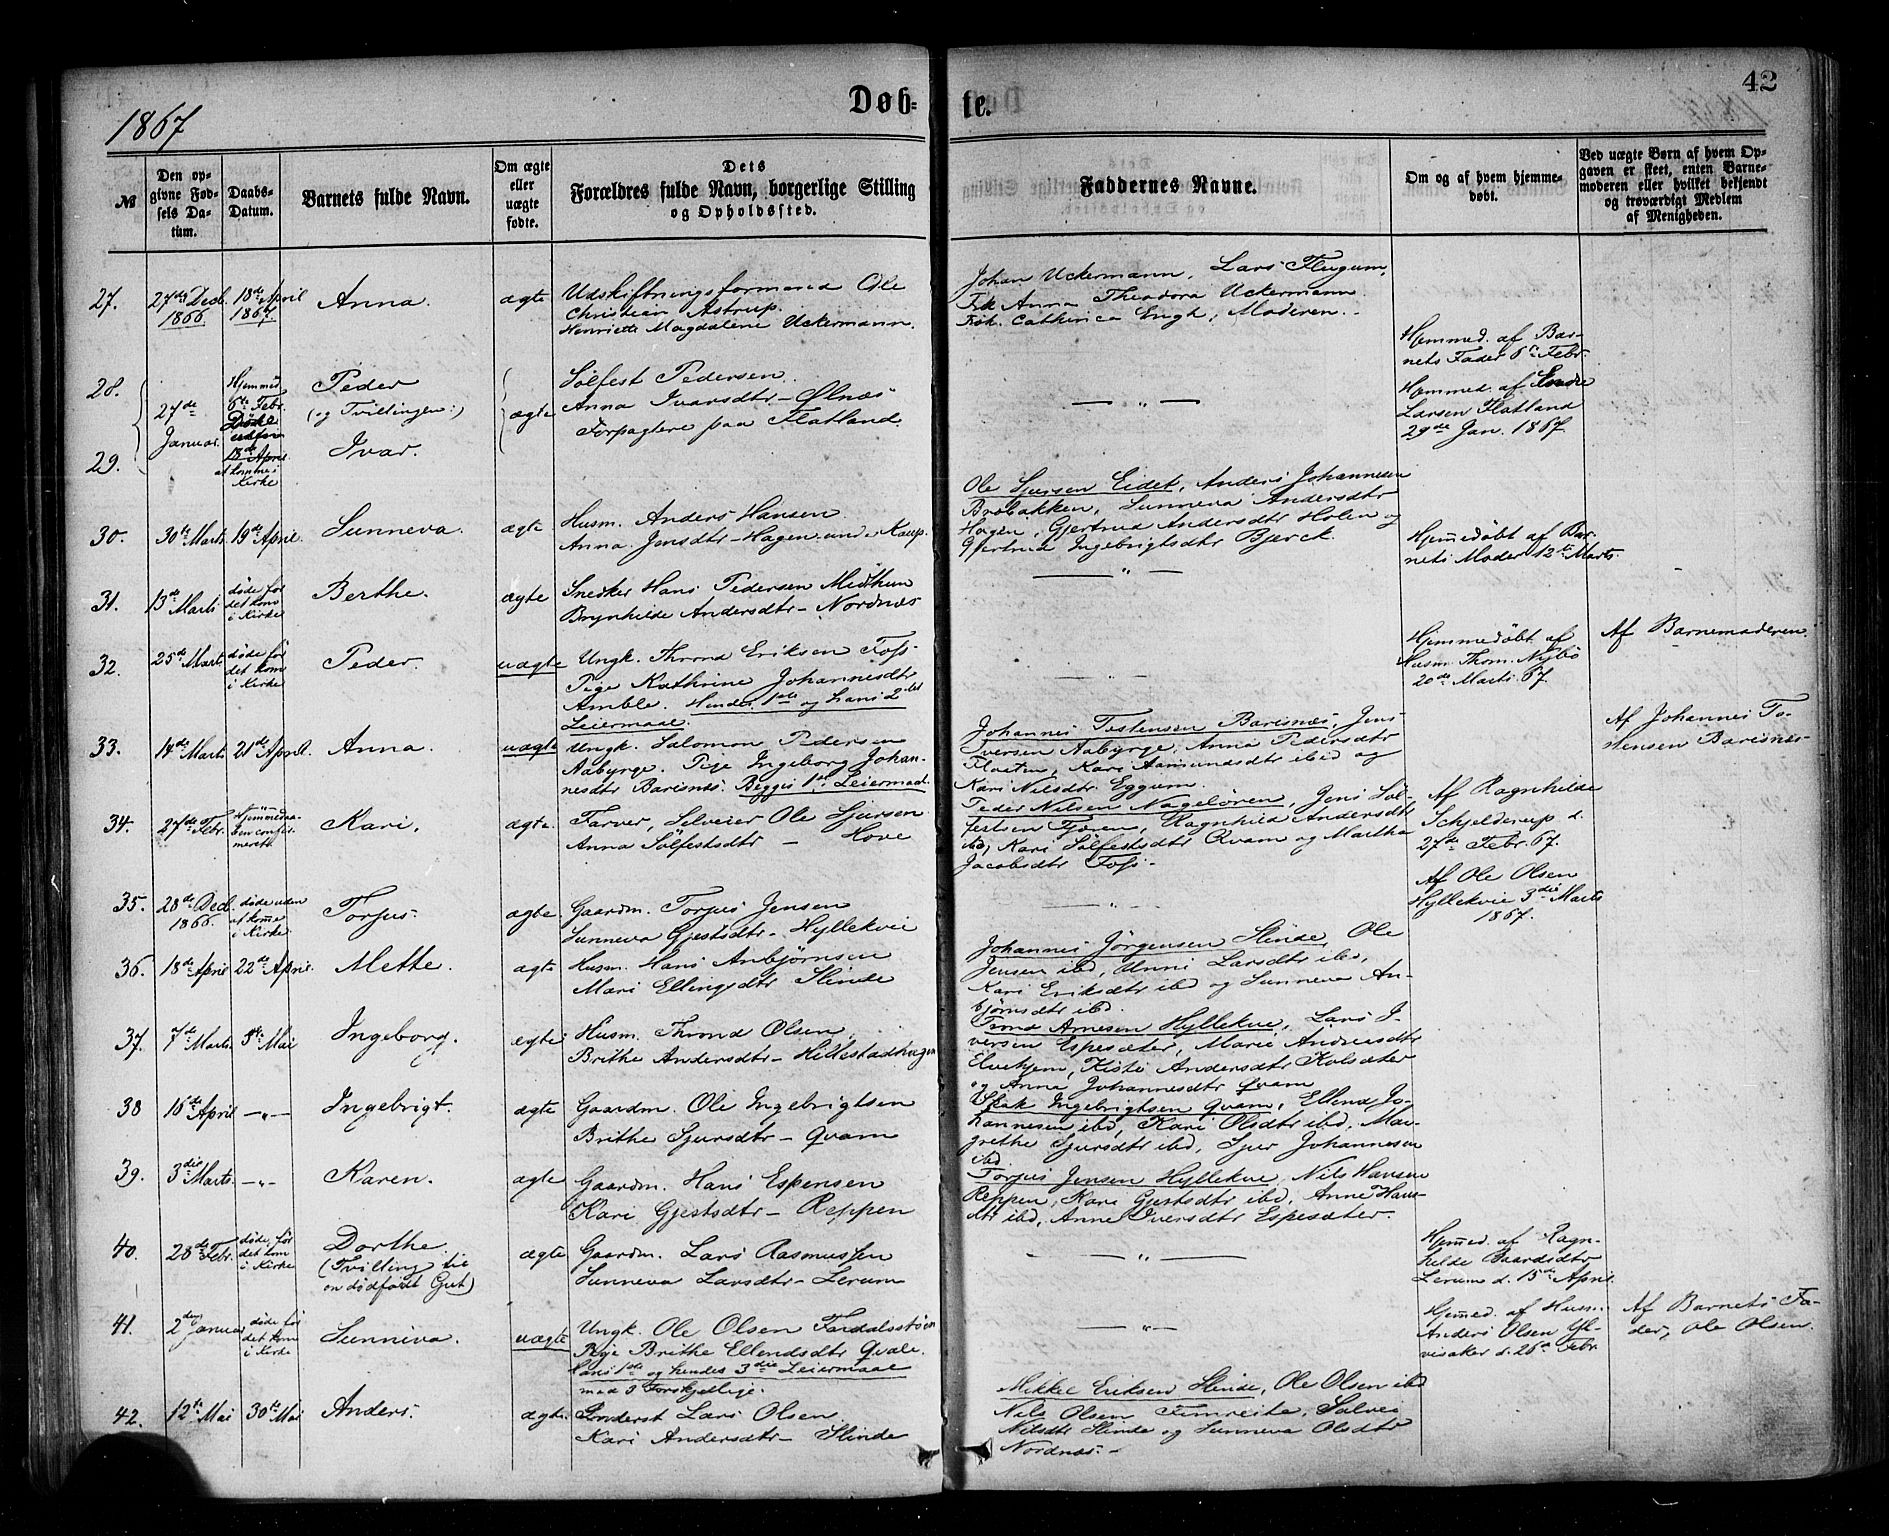 1867
Døb-
te.
42
№
Den op-
givne Fød-
sels Da-
tum.
Daabs-
Datum.
Barnets fulde Navn.
Om ægte
eller
uægte
fødte.
Dets
Forældres fulde Navn, borgerlige Stilling
og Opholdssted.
Faddernes Navne.
Om og af hvem hjemme-
døbt.
Ved uægte Børn af hvem Op-
gaven er skeet, enten Barne-
moderen eller hvilket bekjendt
og troværdigt Medlem
af Menigheden.
27.
27de Decb.
1866
18de April
1867
Anna.
ægte
Udskiftningsformand Ole
Christian Astrup.
Henriette Magdalene Uckermann.
Johan Uckermann, Lars Flugum,
Frk Anna Theodora Uckermann
Frk. Cathrica Engh, Moderen.
28.
29.
27de
Januar.
Hjemmed.
6te Febr.
Døde
uden
18de April
at komme i
Kirke
Peder
(og Tvillingen:)
Ivar.
ægte
Sølfest Pedersen
Anna Ivarsdtr - Ølnæs
Forpagtere paa Flatland
— „ —
Hjemmed. af Bar-
nets Fader 6te Febr.
Hjemmed. af Endre
Larsen Flatland
29de Jan. 1867.
30.
30te Marts
19de April.
Sunneva.
ægte
Husm. Anders Hansen
Anna Jensdtr - Hagen und. Kaup.
Ole Sjursen Eidet, Anders Johannesen
Brobakken, Sunneva Andersdtr
Hagen, Gjertrud Andersdtr Holen og
Gjertrud Ingebrigtsdtr Bjørck.
31.
13de Marts
døde før
det kom
i Kirke
Berthe.
ægte
Snedker Hans Pedersen Midthun
Brynhilde Andersdtr - Nordnæs
— „ —
Hjemmedøbt af Bar-
nets Moder 12te Marts.
32.
25de Marts.
døde før
det kom
i Kirke
Peder.
uægte
Ungk. Thrond Eriksen Foss
Pige Kathrine Johannesdtr
Amble. Hendes 1ste og hans 2det
Leiermaal.
— „ —
Hjemmedøbt af
Husm. Thom. Nybø
20de Marts 67.
Af Barnemoderen.
33.
14de Marts
21de April.
Anna.
uægte
Ungk. Salomon Pedersen
Aabyrge. Pige Ingeborg Johan-
nesdtr Barsnæs. Begges 1ste Leiermaal.
Johannes Tostensen Barsnæs, Jens
Iversen Aabyrge, Anna Pedersdtr
Flaeten, Kari Aamundsdtr ibid og
Kari Nilsdtr Eggum.
Af Johannes To-
stensen Barsnæs
34.
27de Febr.
Hjemmedaa-
ben confir-
meret
Kari.
ægte.
Farver, Selveier Ole Sjursen
Anna Sølfestsdtr — Hove
Peder Nilsen Nageløren, Jens Søl-
festsen Fjæren, Ragnhild Andersdtr
ibd, Kari Sølfestsdtr Qvam og Martha
Jacobsdtr Foss.
Af Ragnhilde
Schjelderup d.
27de Febr. 67.
35.
28de Decb.
1866.
døde uden
at komme
i Kirke
Torjus.
ægte
Gaardm. Torjus Jensen
Sunneva Gjestsdtr - Hyllekvie
— „ —
Af Ole Olsen
Hyllekvie 3die Marts
1867.
36.
18de April
22de April.
Mette.
ægte
Husm. Hans Anbjørnsen
Mari Ellingsdtr Slinde
Johannes Jørgensen Slinde, Ole
Jensen ibd, Unni Larsdtr ibd,
Kari Eriksdtr ibd og Sunneva An-
bjørnsdtr ibd.
37.
7de Marts
5te Mai
Ingeborg.
ægte
Husm. Thrond Olsen
Brithe Andersdtr - Hillestadhagen
Trond Arnesen Hyllekvie, Lars I-
versen Espesæter, Marie Andersdtr
Elvekjem, Kisti Andersdtr Kolsæter
og Anna Johannesdtr Qvam
38
16de April
—„—
Ingebrigt.
ægte
Gaardm. Ole Ingebrigtsen
Brithe Sjursdtr - Qvam
Isak Ingebrigtsen Qvam, Ellend Jo-
hannesen ibd, Kari Olsdtr ibd, Mar-
grethe Sjursdtr ibd, Sjur Johannesen
ibd.
39.
3die Marts.
—„—
Karen.
ægte
Gaardm. Hans Espensen
Kari Gjestsdtr - Reppen
Torjus Jensen Hyllekvie, Nils Hansen
Reppen, Kari Gjestsdtr ibd, Anne Hans-
dtr ibd, Anne Iversdtr Espesæter.
40.
28de Febr.
døde, før
det kom
i Kirke
Dorthe.
(Tvilling til
en dødfødt Gut)
ægte
Gaardm. Lars Rasmussen
Sunneva Larsdtr - Lerum
— „ —
Hjemmed. af Ragn-
hilde Baardsdtr
Lerum d. 15de April.
41.
2den Januar
døde før
det kom
i Kirke
Sunniva.
uægte
Ungk. Ole Olsen Fardalsstøen
Pige Brithe Ellendsdtr Qvale.
Hans 1ste og hendes 3die Leiermaal
med 3 Forskjellige.
— „ —
Hjemmed. af Husm.
Anders Olsen Yl-
visaker d. 26de Febr
Af Barnets Fa-
der, Ole Olsen.
42.
12te Mai
30te Mai
Anders.
ægte.
Inderst Lars Olsen
Kari Andersdtr - Slinde
Mikkel Eriksen Slinde, Ole Olsen ibd
Nils Olsen Fimreite, Salvei
Nilsdtr Slinde og Sunneva Olsdtr
Nordnæs.